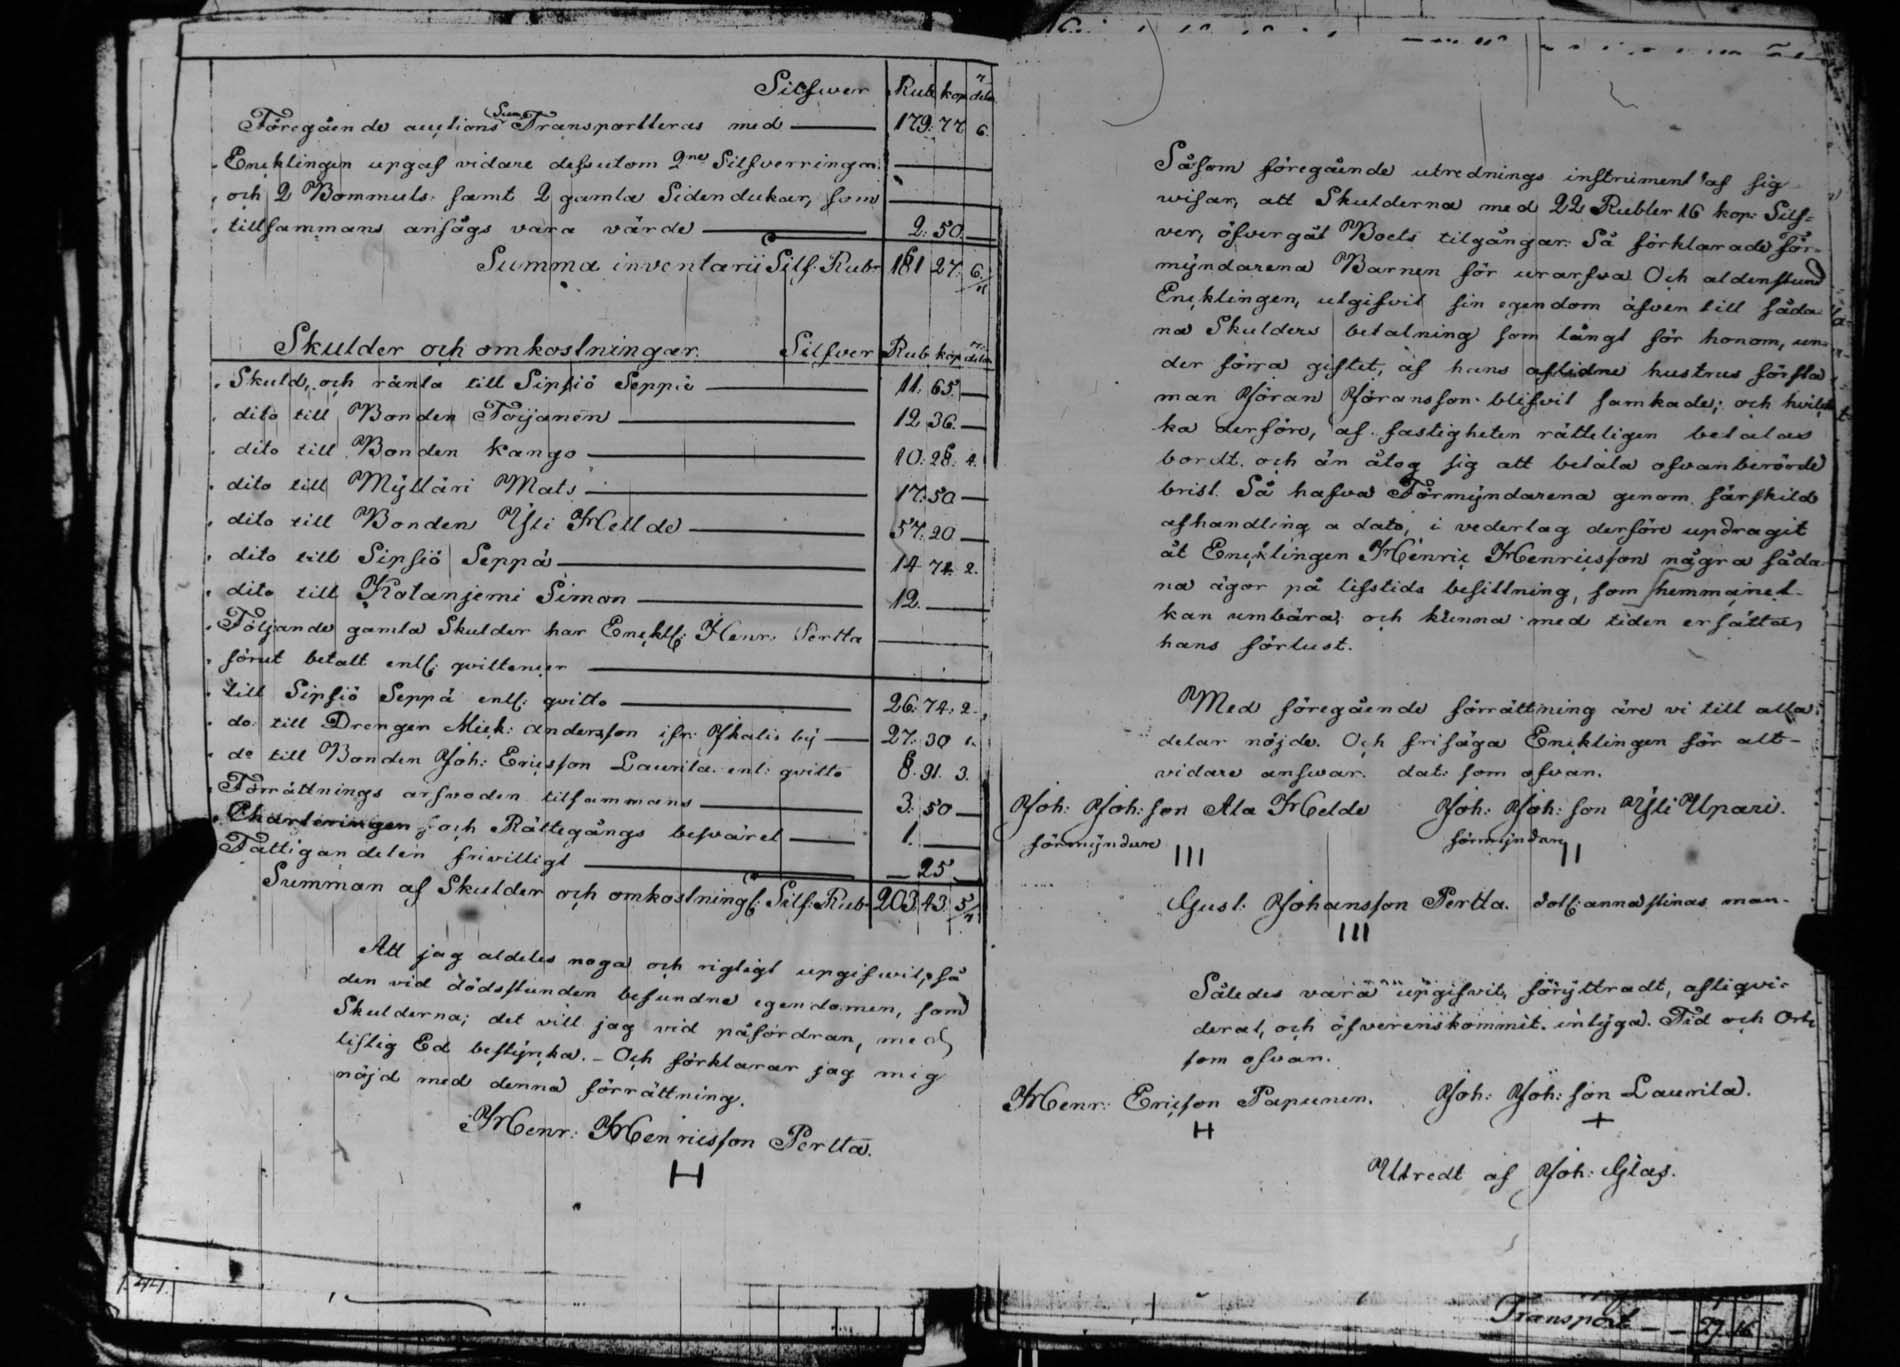 Silfwer Rub kop 7 delar
Föregående auctions Sum Transportteras med 179: 77 6.
Encklingen upgaf vidare dessutom 2ne Silfverringar.
och 2 Bommuls samt 2 gamla Sidendukar, som
tillsammans ansågs vara värde 2: 50.
Summa inventarii Silf: Rubr 181 27. 6/7
Skulder och omkostningar. Silfver Rub kop 7 delar
Skuld, och ränta till Sipsiö Seppä 11. 65.
dito till Bonden Toijanen 12 36.
dito till Bonden Kango 10: 28: 4.
dito till Mylläri Mats 17: 50
dito till Bonden Yli Hellde 57. 20
dito till Sipsiö Seppä 14 74. 2.
dito till Katanjemi Simon 12.
Följande gamla Skulder har Enckl: Henr: Pertta
förut betalt enl: qvittencer
till Sipsiö Seppä enl: qvitto 26: 74: 2.
do: till Drengen Mick: Andersson ifr: Ikalis by 27: 30 1.
do till Bonden Joh: Ericsson Laurila enl: qvitto 8. 91. 3.
Förrättnings arfvoden tilsammans 3: 50
Charteringen och Rättegångs besväret 1.
Fattigandelen frivilligt 25
Summan af Skulder och omkostning: Silf: Rub 203 43 5/7
Att jag aldeles noga och rigtigt upgifwit, så
den vid dödsstunden befundne egendomen, som
Skulderna; det vill jag vid påfordran, med
liflig Ed bestyrka. – Och förklarar jag mig
nöjd med denna förrättning.
Henr: Henricsson Pertta.
H
Såsom föregående utrednings instrument af sig
wisar, att Skulderna med 22 Rubler 16 kop: Silf=
ver, öfvergåt Boets tilgångar: Så förklarade för-
myndarena Barnen för urarfva Och aldenstund
Encklingen, utgifvit sin egendom äfven till såda
na Skulders betalning som långt för honom, un=
der förra giftet, af hans aflidne hustrus första
man Jöran Jöransson blifvit samkade; och hvil
ka derföre, af fastigheten rätteligen betalas
bordt. och än åtog sig att betala ofvanberörde
brist. Så hafva Förmyndarena genom särskild
afhandling a dato, i vederlag derföre updragit
åt Encklingen Henric Henricsson några såda
na ägor på lifstids besittning, som hemmanet
kan umbära, och kunna med tiden ersätta
hans förlust.
Med föregående förrättning äre vi till alla
delar nöjde. Och frisäga Encklingen för alt-
vidare answar. dat: som ofvan.
Joh: Joh: son Ala Helde Joh: Joh: son Yli Upari.
förmyndare förmyndare
III II
Gust: Johansson Pertta. dotf: annastinas man-
III
Således vara upgifvit, föryttradt, afliqvi-
derat, och öfverenskommit. intyga. Tid och Ort
som ofvan.
Henr: Ericson Papunen. Joh: Joh: son Laurila.
H +
Utredt af Joh: Glas.
144.
Transport 27. 16